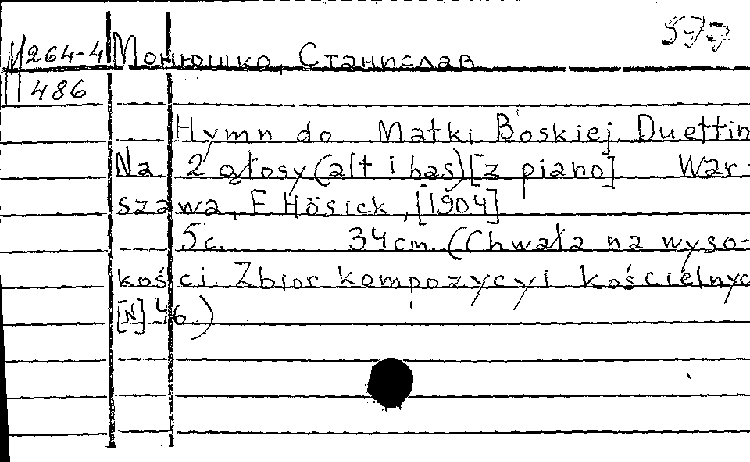 577
М264-4 Монюшко, Станислав
486
Hymn do Matki Boskiej. Duettin
Na 2 głosy (alt i bas) [z piano] War-
szawa, F. Hösick, [1904]
5 c. 34 cm. (Chwała na wyso-
kości. Zbior kompozycyi kościelnyc
[N] 46.)